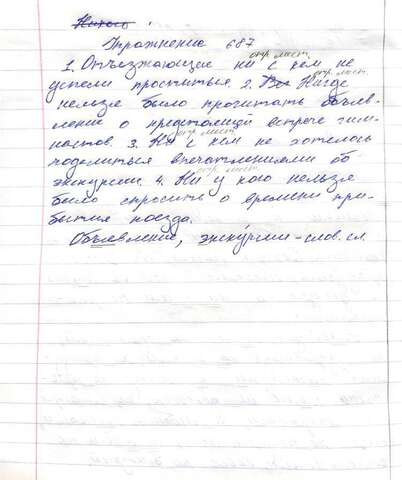 Никого
Упражнение 687
отр. мест.
1. Отъезжающие ни с кем не
отр. мест.
успели проститься. 2. Все Нигде
нельзя было прочитать объяв-
ление о предстоящей встрече гим-
отр. мест.
настов. 3. Ни с кем не хотелось
поделиться впечатлениями об
отр. мест.
экскурсии. 4. Ни у кого нельзя
было спросить о времени при-
бытия поезда.
Объявление, экскурсии – слов. сл.